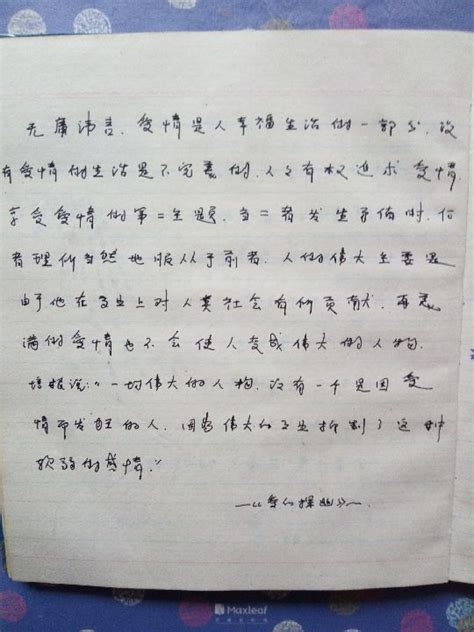 无庸讳言，爱情是人幸福生活的一部分，没
有爱情的生活是不完善的，人人有权追求爱情
享受爱情的第二主题，当二者发生矛伯时，后
者理所当然地服从于前者，人的伟大主要是
由于他在事业上对人类社会有所贡献，再美
满的爱情也不会使人变成伟大的人物，
培根说："一切伟大的人物，没有一个是因爱
情而发狂的人，因为伟大的事业抑制了这种
软弱的感情。"
—《爱的探幽》—
Maxleaf